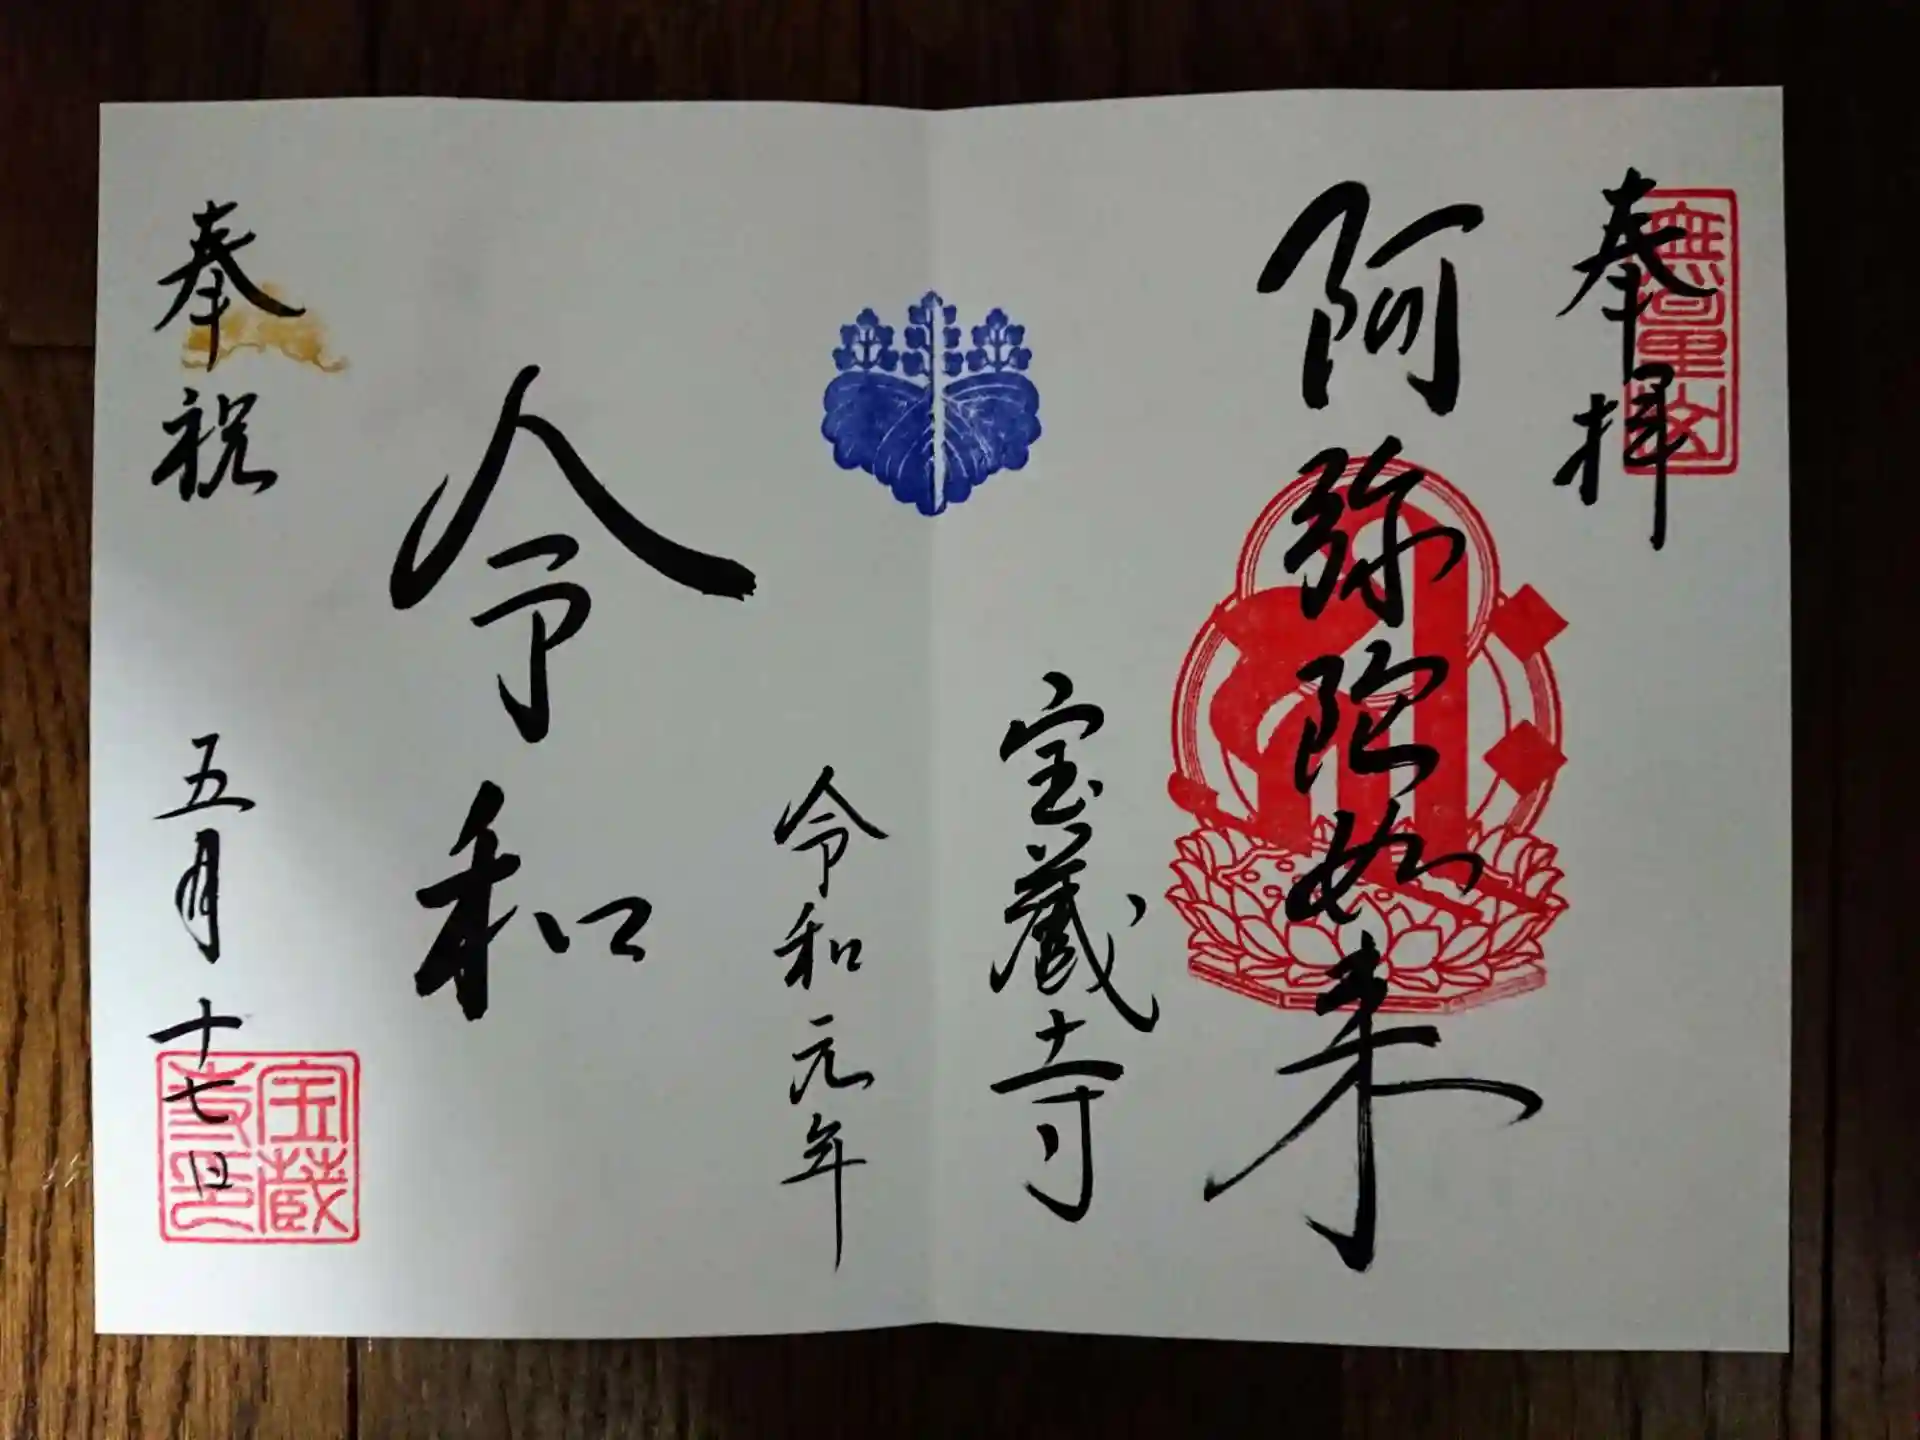 奉拝
阿弥陀如来
宝蔵寺
令和元年
令和
奉祝
五月十七日
宝蔵
寺印